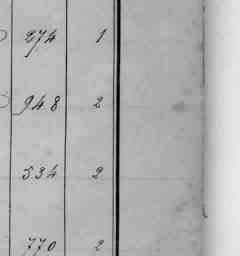 274 1
948 2
534 2
770 2